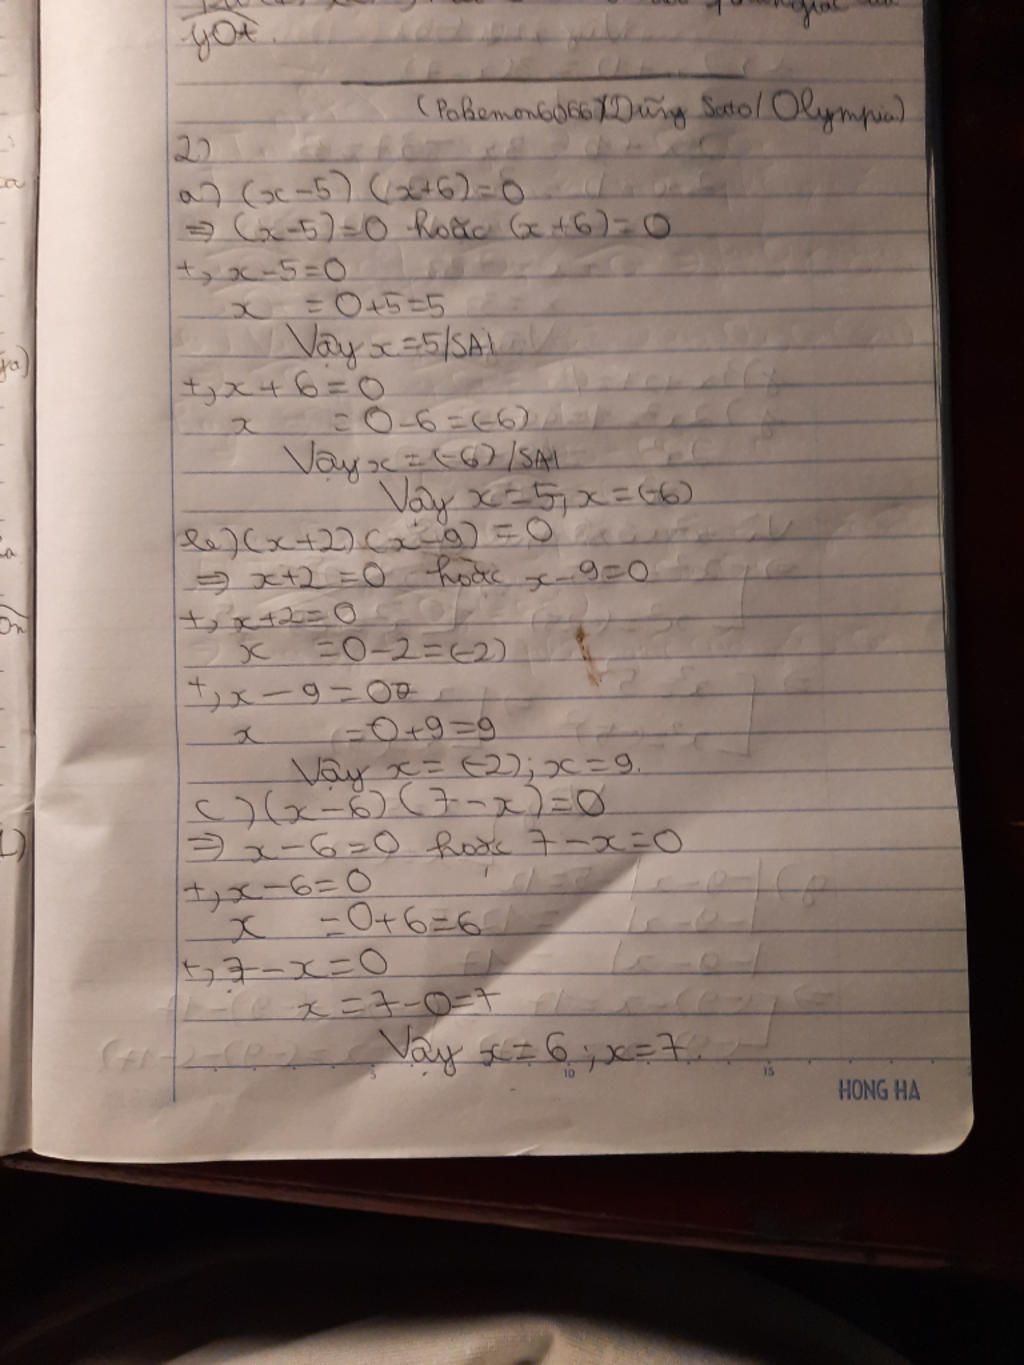 yOt.
(Pokemon6066)(Dũng Sato/Olympia)
2)
a) (x-5) (x+6)=0
=> (x-5)=0 hoặc (x+6)=0
+, x-5=0
x =0+5=5
Vậy x=5/SAI
+, x+6=0
x =0-6=(-6)
Vậy x=(-6)/SAI
Vậy x=5; x=(-6)
b) (x+2) (x-9)=0
=> x+2=0 hoặc x-9=0
+, x+2=0
x =0-2=(-2)
+, x-9=0
x =0+9=9
Vậy x=(-2); x=9.
c) (x-6) (7-x)=0
=> x-6=0 hoặc 7-x=0
+, x-6=0
x =0+6=6
+, 7-x=0
x=7-0=7
Vậy x=6; x=7.
5 10 15
HONG HA